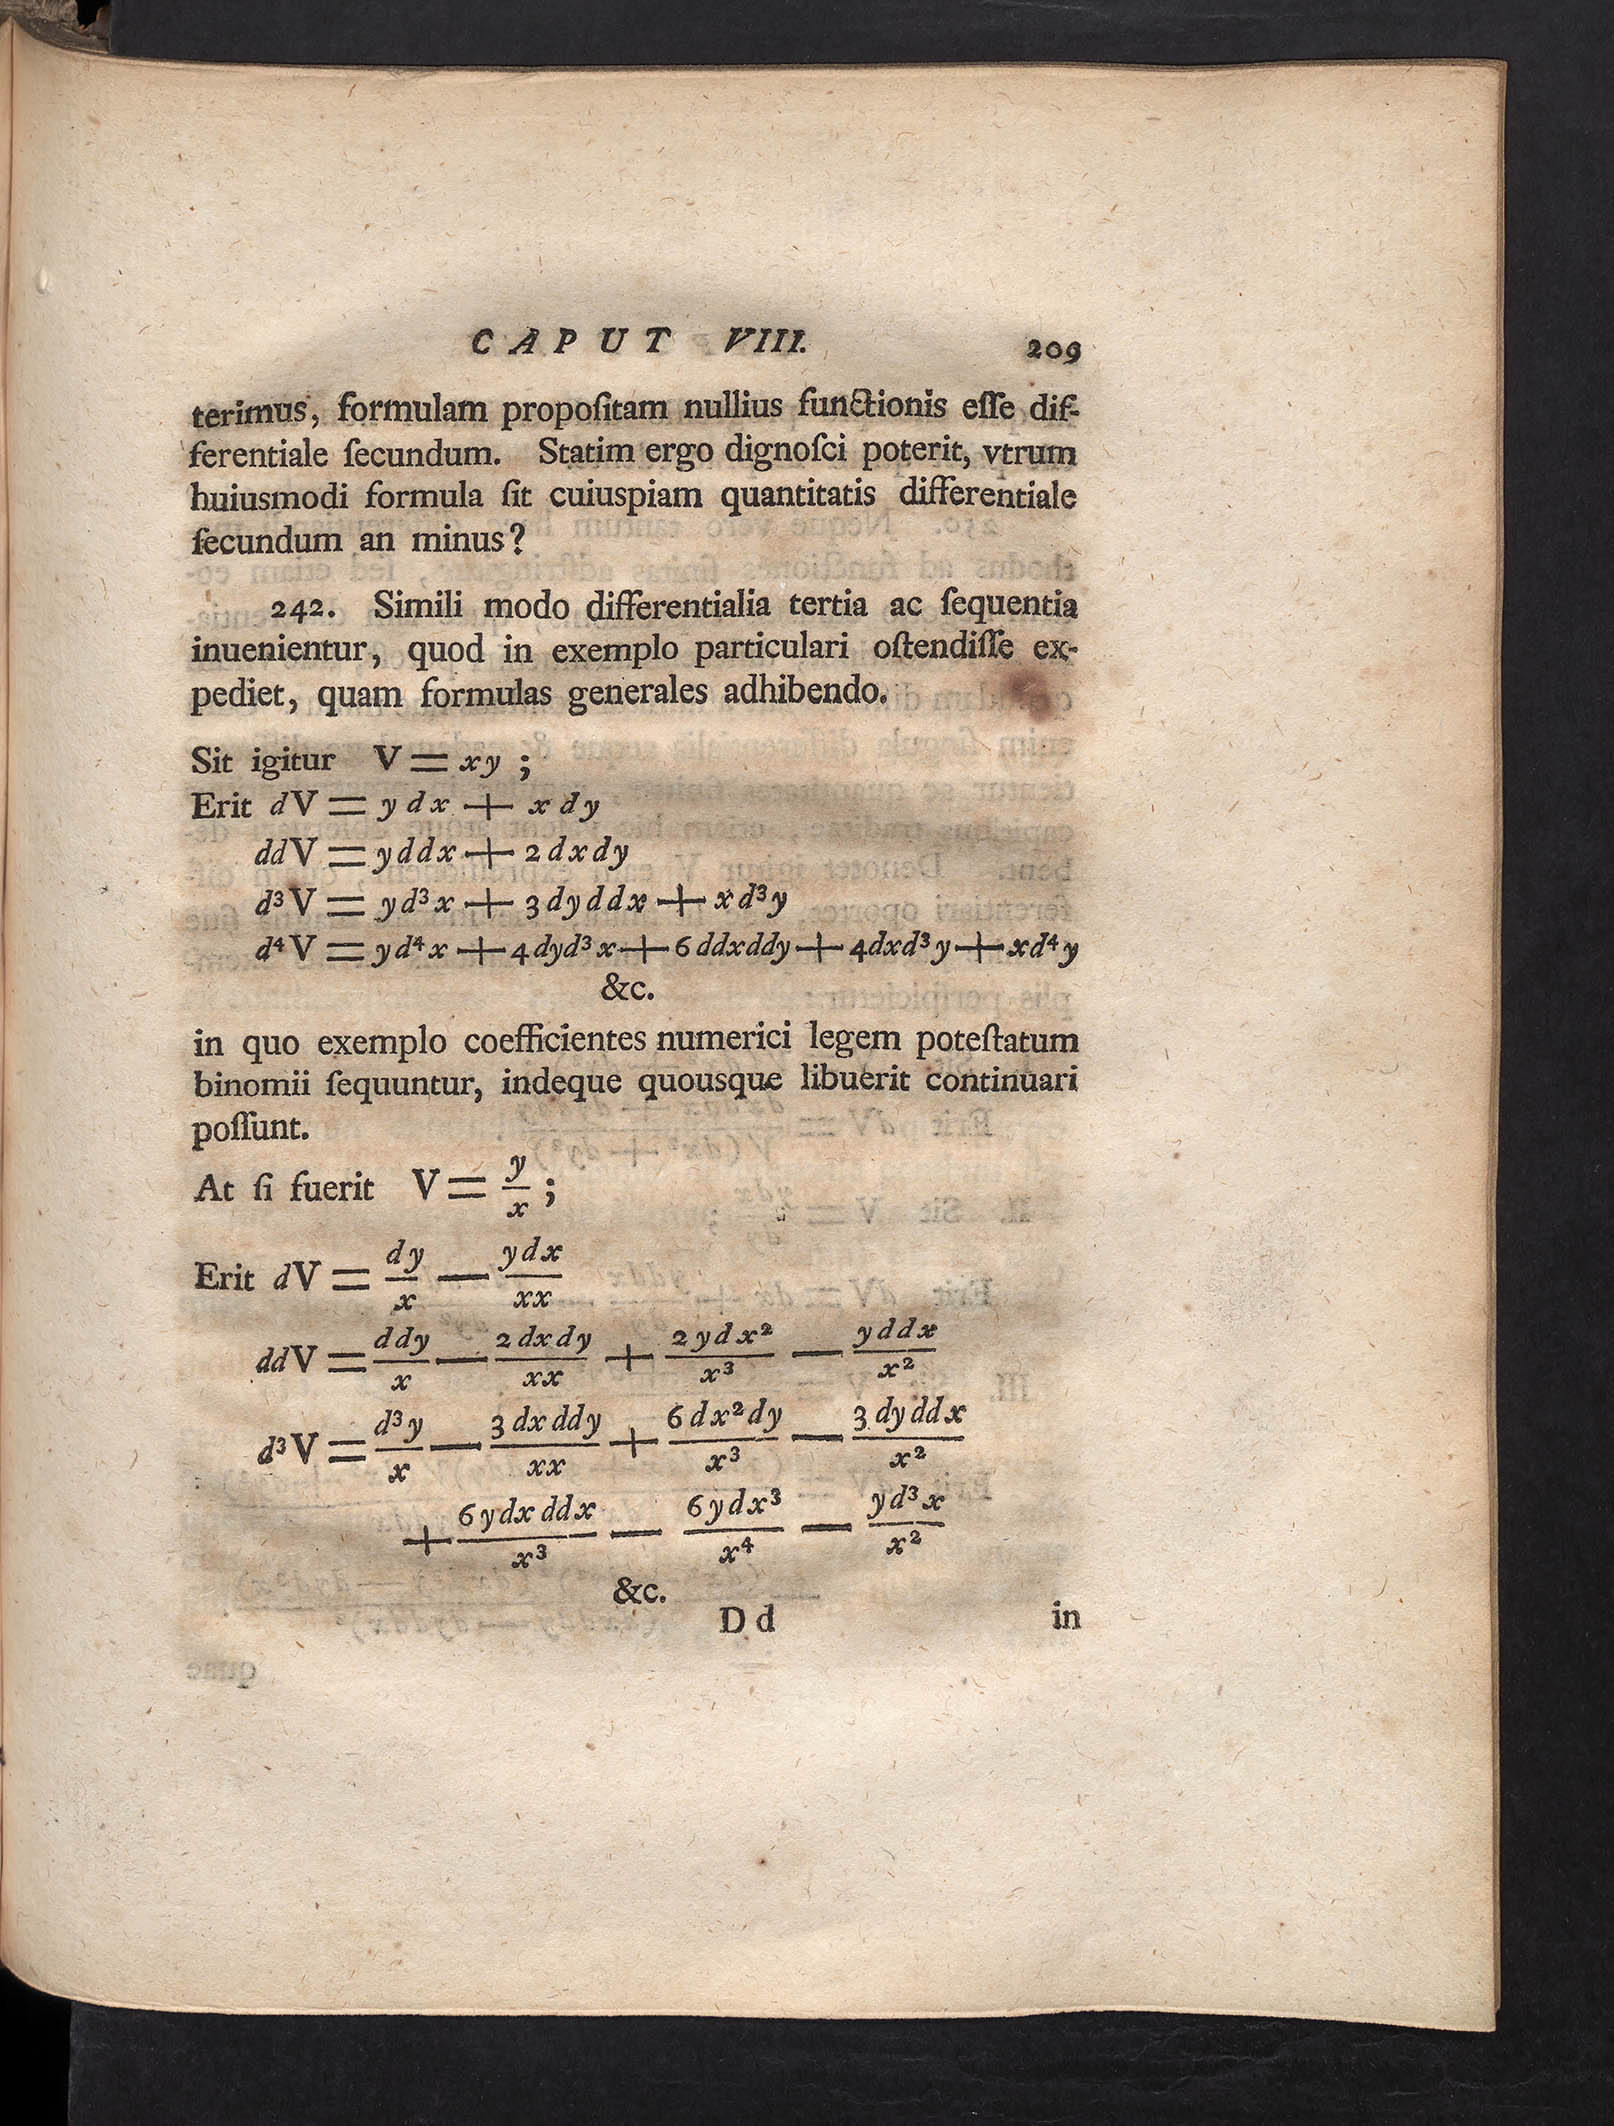 CAPUT VIII. 209
terimus, formulam propoſitam nullius functionis eſſe dif-
ferentiale ſecundum. Statim ergo dignoſci poterit, vtrum
huiusmodi formula ſit cuiuspiam quantitatis differentiale
ſecundum an minus?
242. Simili modo differentialia tertia ac ſequentia
inuenientur, quod in exemplo particulari oſtendiſſe ex-
pediet, quam formulas generales adhibendo.
Sit igitur V = xy ;
Erit dV = y dx + x dy
ddV = yddx + 2dxdy
d³V = yd³x + 3dyddx + xd³y
d⁴V = yd⁴x + 4dyd³x + 6ddxddy + 4dxd³y + xd⁴y
&c.
in quo exemplo coefficientes numerici legem poteſtatum
binomii ſequuntur, indeque quousque libuerit continuari
poſſunt.
At ſi fuerit V = y/x ;
Erit dV = dy/x — ydx/xx
ddV = ddy/x — 2dxdy/xx + 2ydx²/x³ — yddx/x²
d³V = d³y/x — 3dxddy/xx + 6dx²dy/x³ — 3dyddx/x²
+ 6ydxddx/x³ — 6ydx³/x⁴ — yd³x/x²
&c.
Dd in